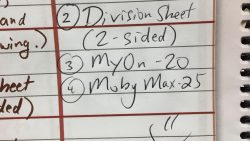 and
② Division Sheet
wing.)
(2-sided)
③ MyOn -20
heet
④ Moby Max-25
ded)